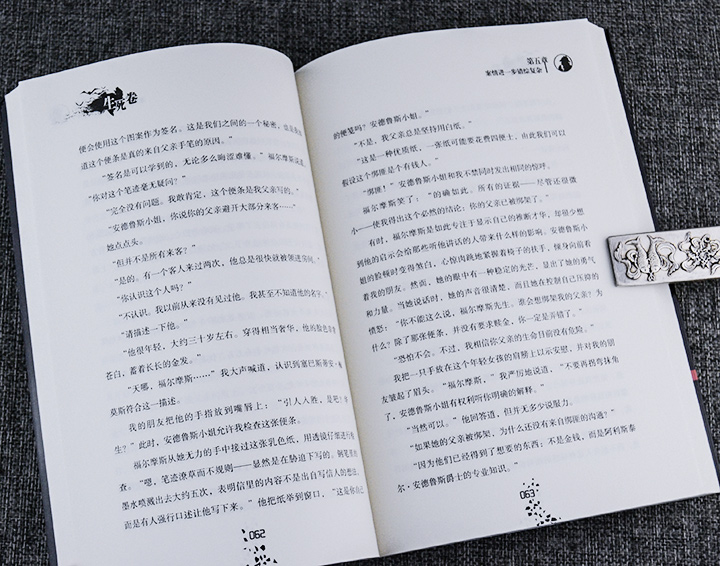 生死卷
便会使用这个图案作为签名。这是我们之间的一个秘密，
道这个便条是真的来自父亲手笔的原因。”
“签名是可以学到的，无论多么晦涩难懂。”福尔摩斯说
“你对这个笔迹毫无疑问？”
“完全没有问题。我敢肯定，这个便条是我父亲写的。”
“安德鲁斯小姐，你说你的父亲避开大部分来客……”
她点点头。
“但并不是所有来客？”
“是的。有一个客人来过两次，他总是很快就被领进房间。”
“你认识这个人吗？”
“不认识。我以前从来没有见过他。我甚至不知道他的名字。”
“请描述一下他。”
“他很年轻，大约三十岁左右。穿得相当奢华，他的脸色非常
苍白，蓄着长长的金发。”
“天哪，福尔摩斯……”我大声喊道，认识到塞巴斯蒂安·
莫斯符合这一描述。
我的朋友把他的手指放到嘴唇上：“引人入胜，是吧，
生？”此时，安德鲁斯小姐允许我检查这张便条。
福尔摩斯从她无力的手中接过这张乳色纸，用透镜仔细进行
查。“嗯，笔迹潦草而不规则——显然是在胁迫下写的。钢笔
墨水喷溅出去大约五次，表明信里的内容不是出自写信人的想法，
而是有人强行口述让他写下来。”他把纸举到窗口，“这是你自己
062
第五章
案情进一步错综复杂
的便笺吗？安德鲁斯小姐。”
“不是，我父亲总是坚持用白纸。”
“这是一种优质纸，一张纸可能要花费四便士，由此我们可以
假设这个绑匪是个有钱人。”
“绑匪！”安德鲁斯小姐和我不禁同时发出相同的惊呼。
福尔摩斯笑了：“的确如此。所有的证据——尽管还很微
小——使我得出这个必然的结论：你的父亲已被绑架了。”
有时，福尔摩斯是如此专注于显示自己的推断才华，却很少想
到他的启示会给那些听他讲话的人带来什么样的影响。安德鲁斯小
姐的脸顿时变得煞白，心惊肉跳地紧握着椅子的扶手，倾身向前看
着我的朋友。然而，她的眼中有一种稳定的光芒，显出了她的勇气
和力量。当她说话时，她的声音很清楚，而且她在控制自己压抑的
愤怒：“你不能这么说，福尔摩斯先生。谁会想绑架我的父亲？为
什么？除了那张便条，并没有要求赎金，你一定是弄错了。”
“恐怕不会。不过，我相信你父亲的生命目前没有危险。”
我把一只手放在这个年轻女孩的肩膀上以示安慰，并对我的朋
友皱起了眉头。“福尔摩斯，”我严厉地说道，“不要再拐弯抹角
了，安德鲁斯小姐有权利听你明确的解释。”
“当然可以。”他回答道，但并无多少说服力。
“如果她的父亲被绑架，为什么还没有来自绑匪的沟通？”
“因为他们已经得到了想要的东西：不是金钱，而是阿利斯泰
尔·安德鲁斯爵士的专业知识。”
063